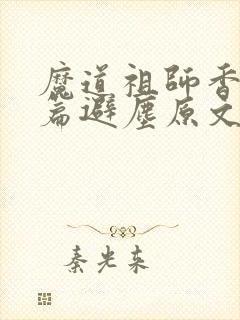 魔道祖師香
篇避塵原文
秦光東